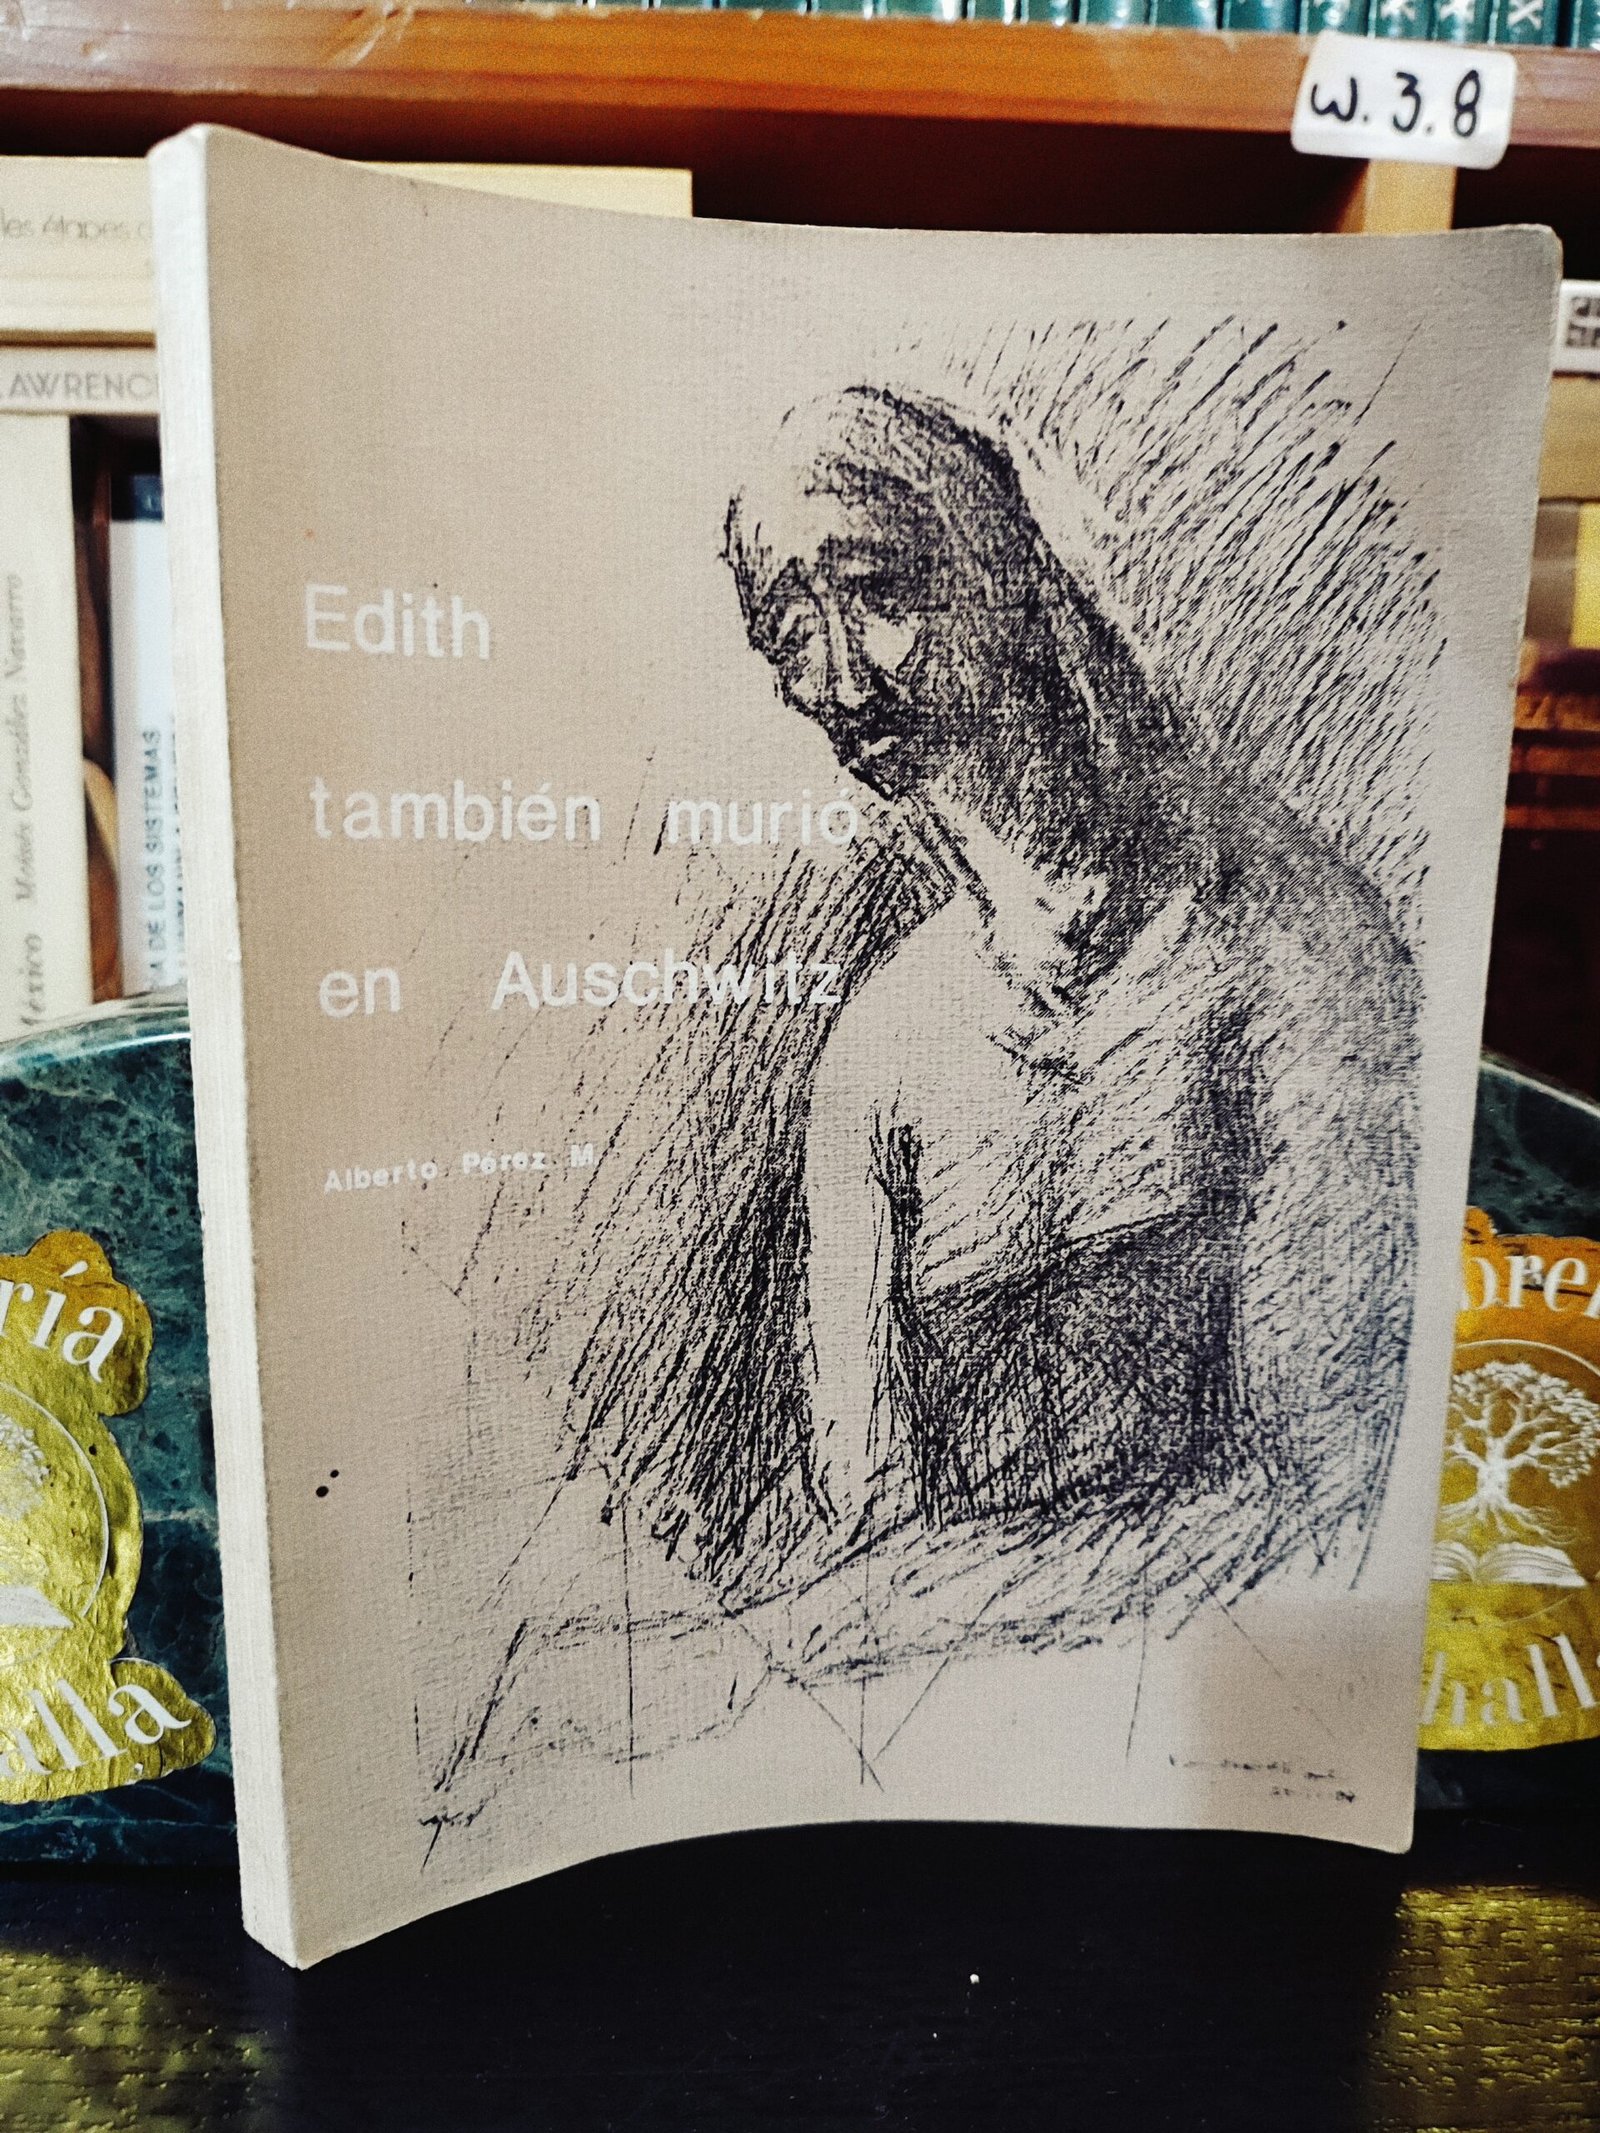 w. 3. 8
les étapes
LAWRENC
Edith
también murió
en Auschwitz
Alberto Pérez M.
Moisés González Navarro
México
A DE LOS SISTEMAS
ría
alla
bre
halla